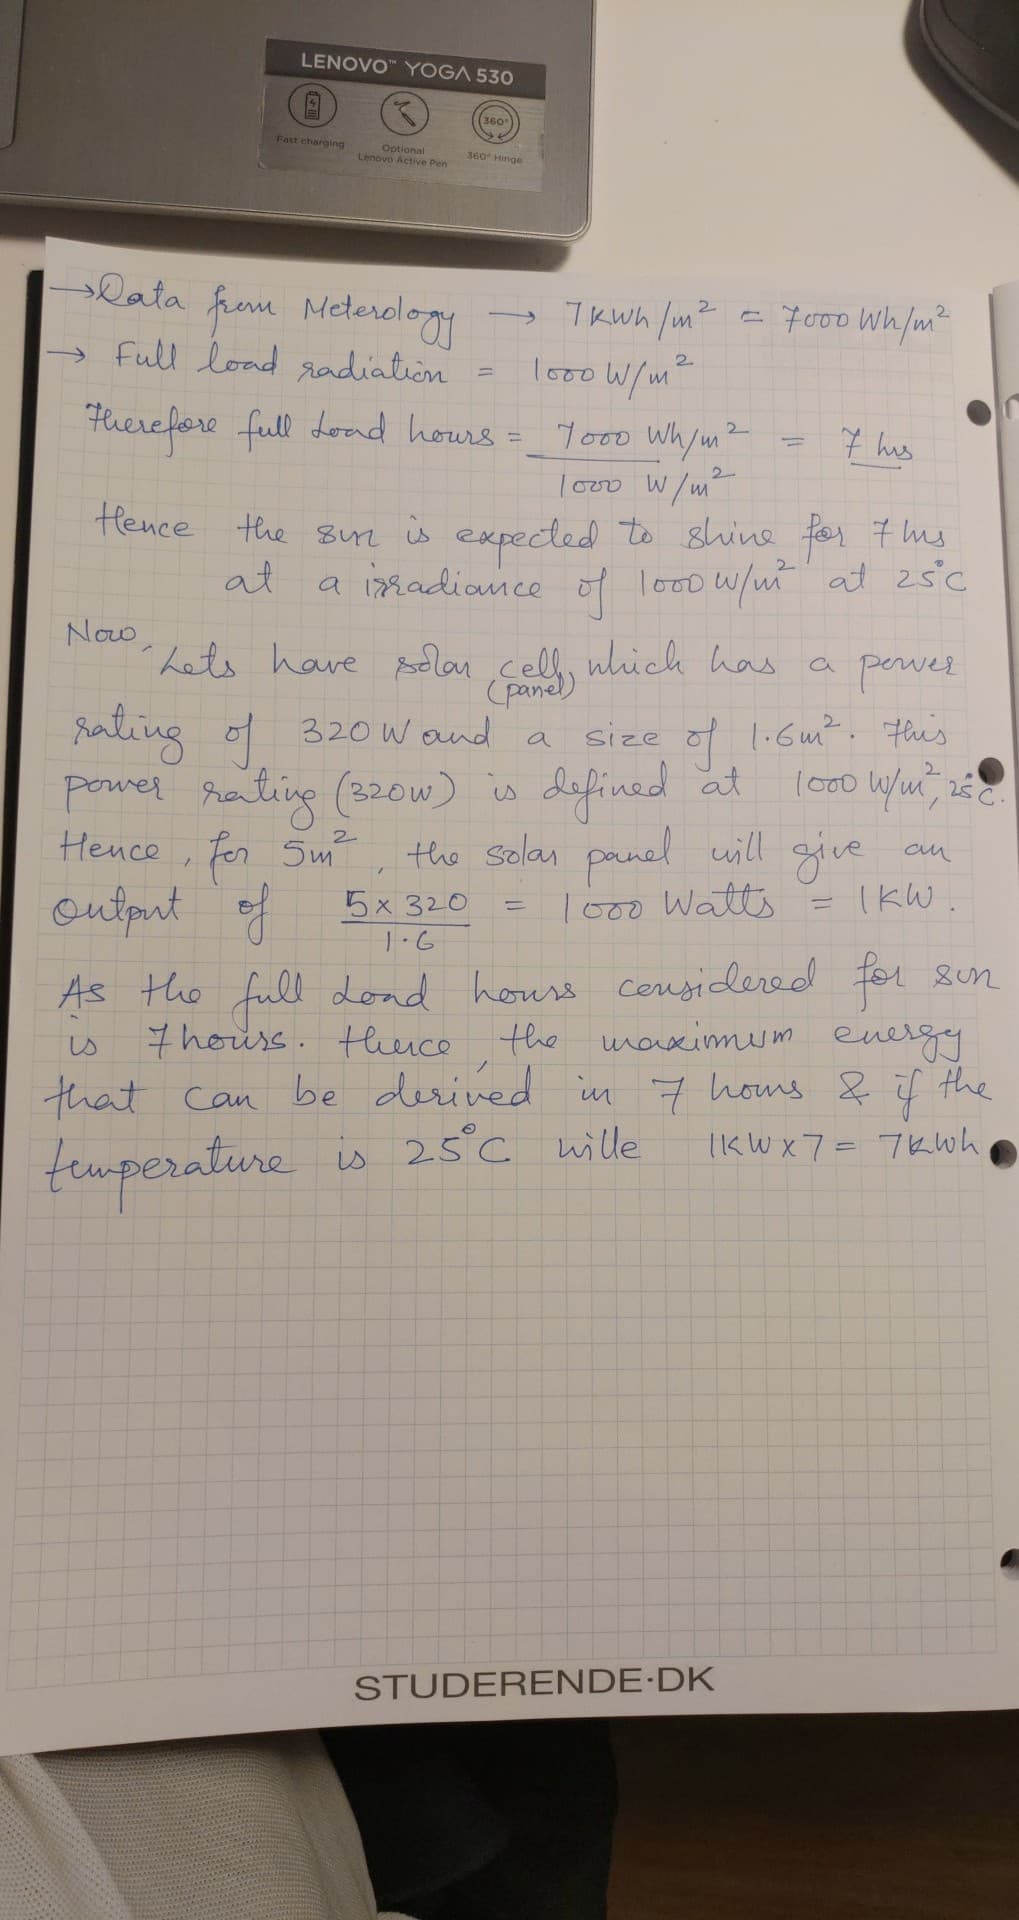 LENOVO™ YOGA 530
360°
Fast charging
Optional
Lenovo Active Pen
360° Hinge
→ Data from Meterology → 7 KWh/m² = 7000 Wh/m²
→ Full load radiation = 1000 W/m²
Therefore full load hours = 7000 Wh/m² = 7 hrs
1000 W/m²
Hence the sun is expected to shine for 7 hrs
at a irradiance of 1000 W/m² at 25°C
Now,
Lets have solar cell, which has a power
(panel)
rating of 320 W and a size of 1.6m². This
power rating (320W) is defined at 1000 W/m², 25°C.
Hence, for 5m², the solar panel will give an
output of 5 x 320 = 1000 Watts = 1 KW.
1.6
As the full load hours considered for sun
is 7 hours. Hence, the maximum energy
that can be derived in 7 hours & if the
temperature is 25°C wille 1KW x 7 = 7KWh
STUDERENDE·DK